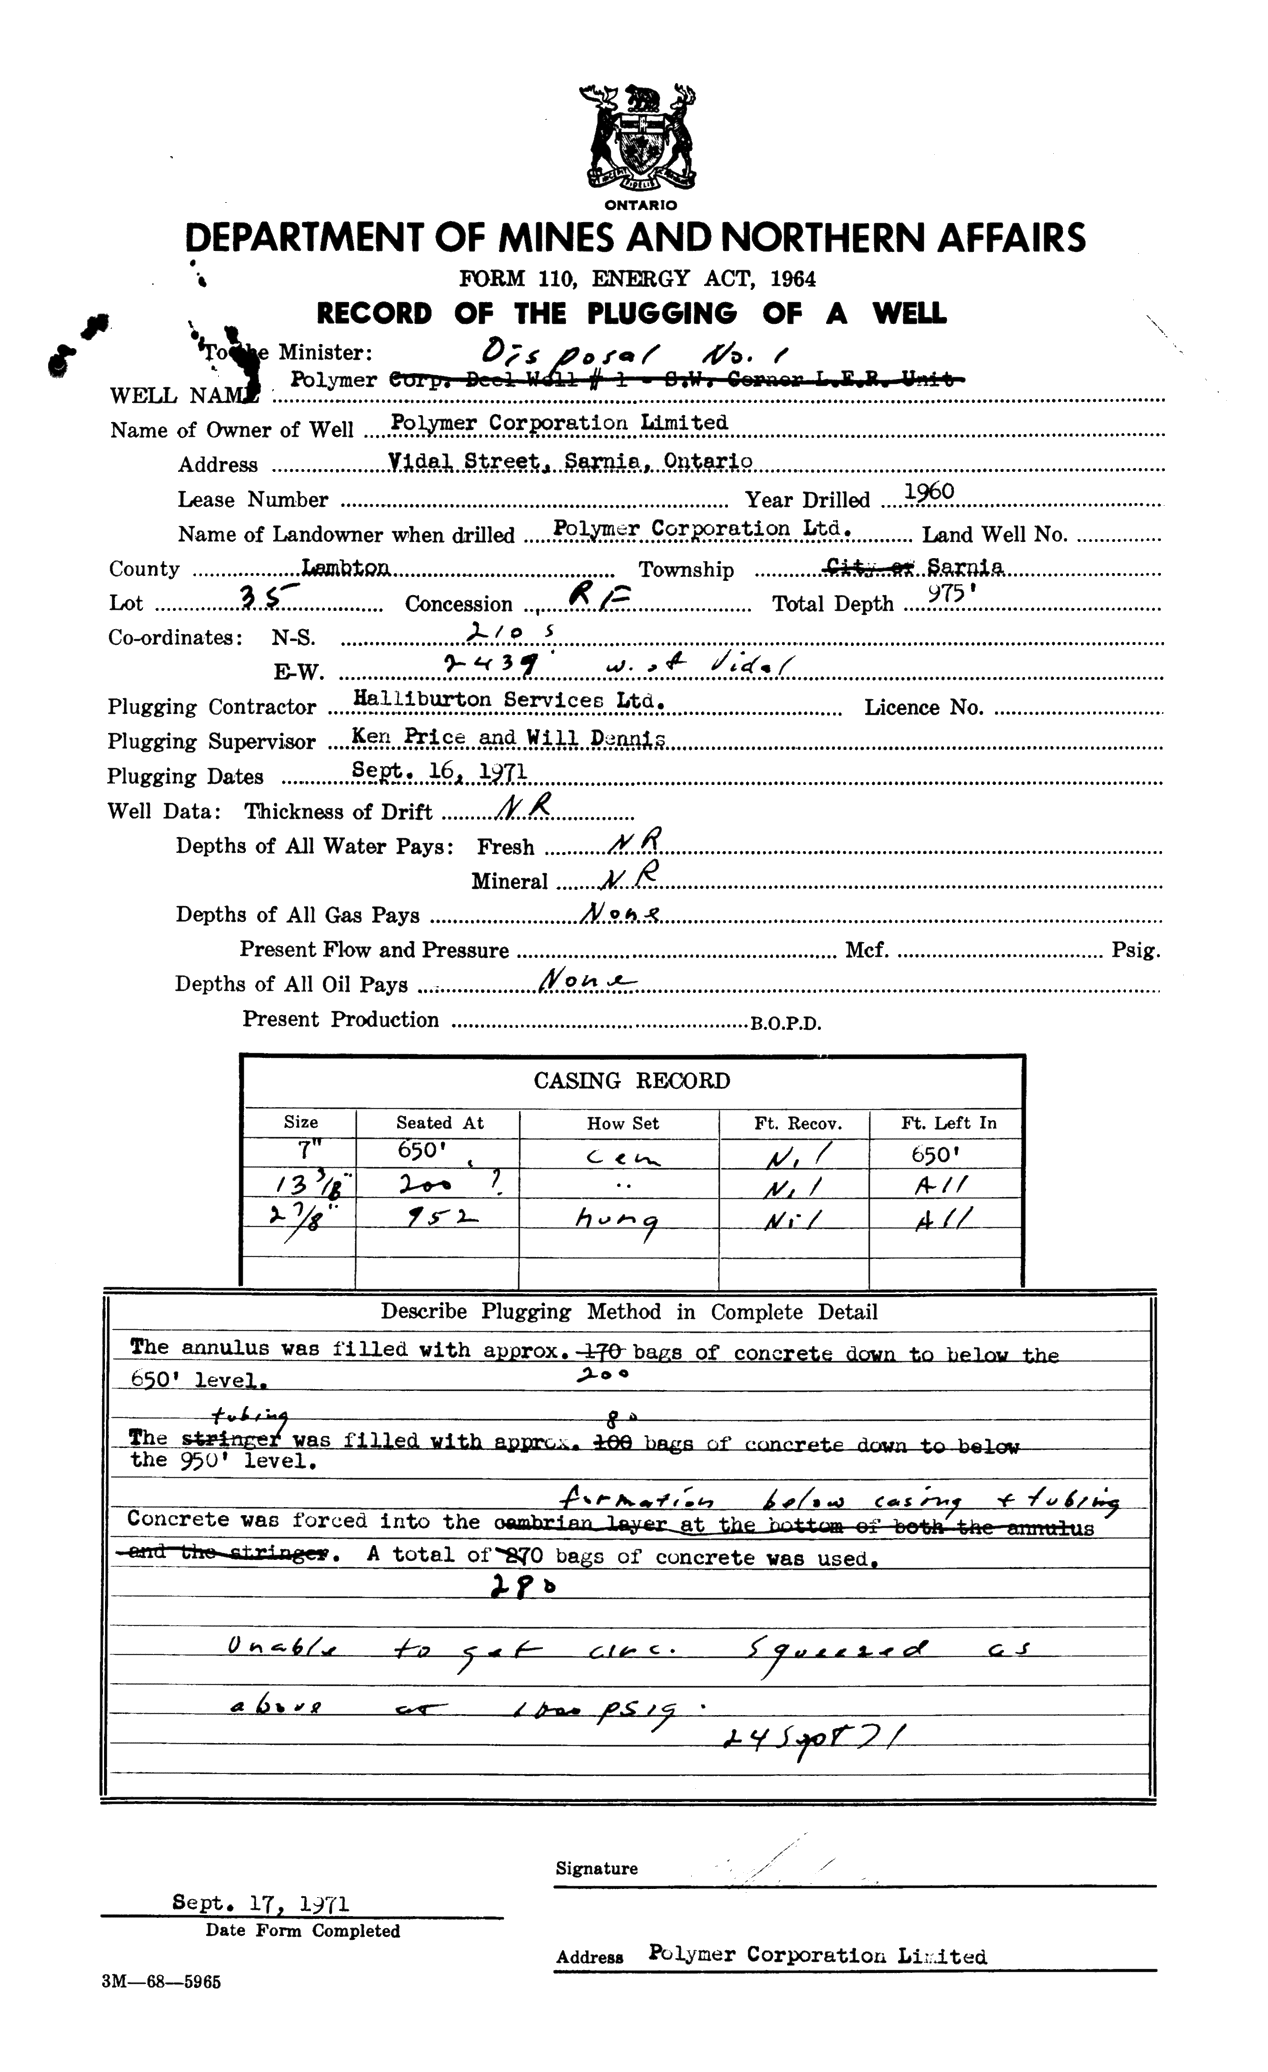 ONTARIO
DEPARTMENT OF MINES AND NORTHERN AFFAIRS
FORM 110, ENERGY ACT, 1964
RECORD OF THE PLUGGING OF A WELL
To the Minister: Disposal No. 1
WELL NAME Polymer Corp. Deel Well # 1 - S.W. Corner L.E.R. Unit
Name of Owner of Well Polymer Corporation Limited
Address Vidal Street, Sarnia, Ontario
Lease Number Year Drilled 1960
Name of Landowner when drilled Polymer Corporation Ltd. Land Well No.
County Lambton Township City of Sarnia
Lot 35 Concession RF Total Depth 975'
Co-ordinates: N-S. 210 S
E-W. 2439' W. of Vidal
Plugging Contractor Halliburton Services Ltd. Licence No.
Plugging Supervisor Ken Price and Will Dennis
Plugging Dates Sept. 16, 1971
Well Data: Thickness of Drift NR
Depths of All Water Pays: Fresh NR
Mineral NR
Depths of All Gas Pays None
Present Flow and Pressure Mcf. Psig.
Depths of All Oil Pays None
Present Production B.O.P.D.
CASING RECORD
Size Seated At How Set Ft. Recov. Ft. Left In
7" 650' cem Nil 650'
13 3/8" 200 ? " Nil All
2 7/8" 952 hung Nil All
Describe Plugging Method in Complete Detail
The annulus was filled with approx. 170 bags of concrete down to below the
650' level. 200
tubing 80
The stringer was filled with approx. 100 bags of concrete down to below
the 950' level.
formation below casing + tubing
Concrete was forced into the cambrian layer at the bottom of both the annulus
and the stringer. A total of 270 bags of concrete was used.
280
Unable to get circ. Squeezed as
above at 1000 psig.
24 Sept 71
Signature
Sept. 17, 1971
Date Form Completed
Address Polymer Corporation Limited
3M—68—5965